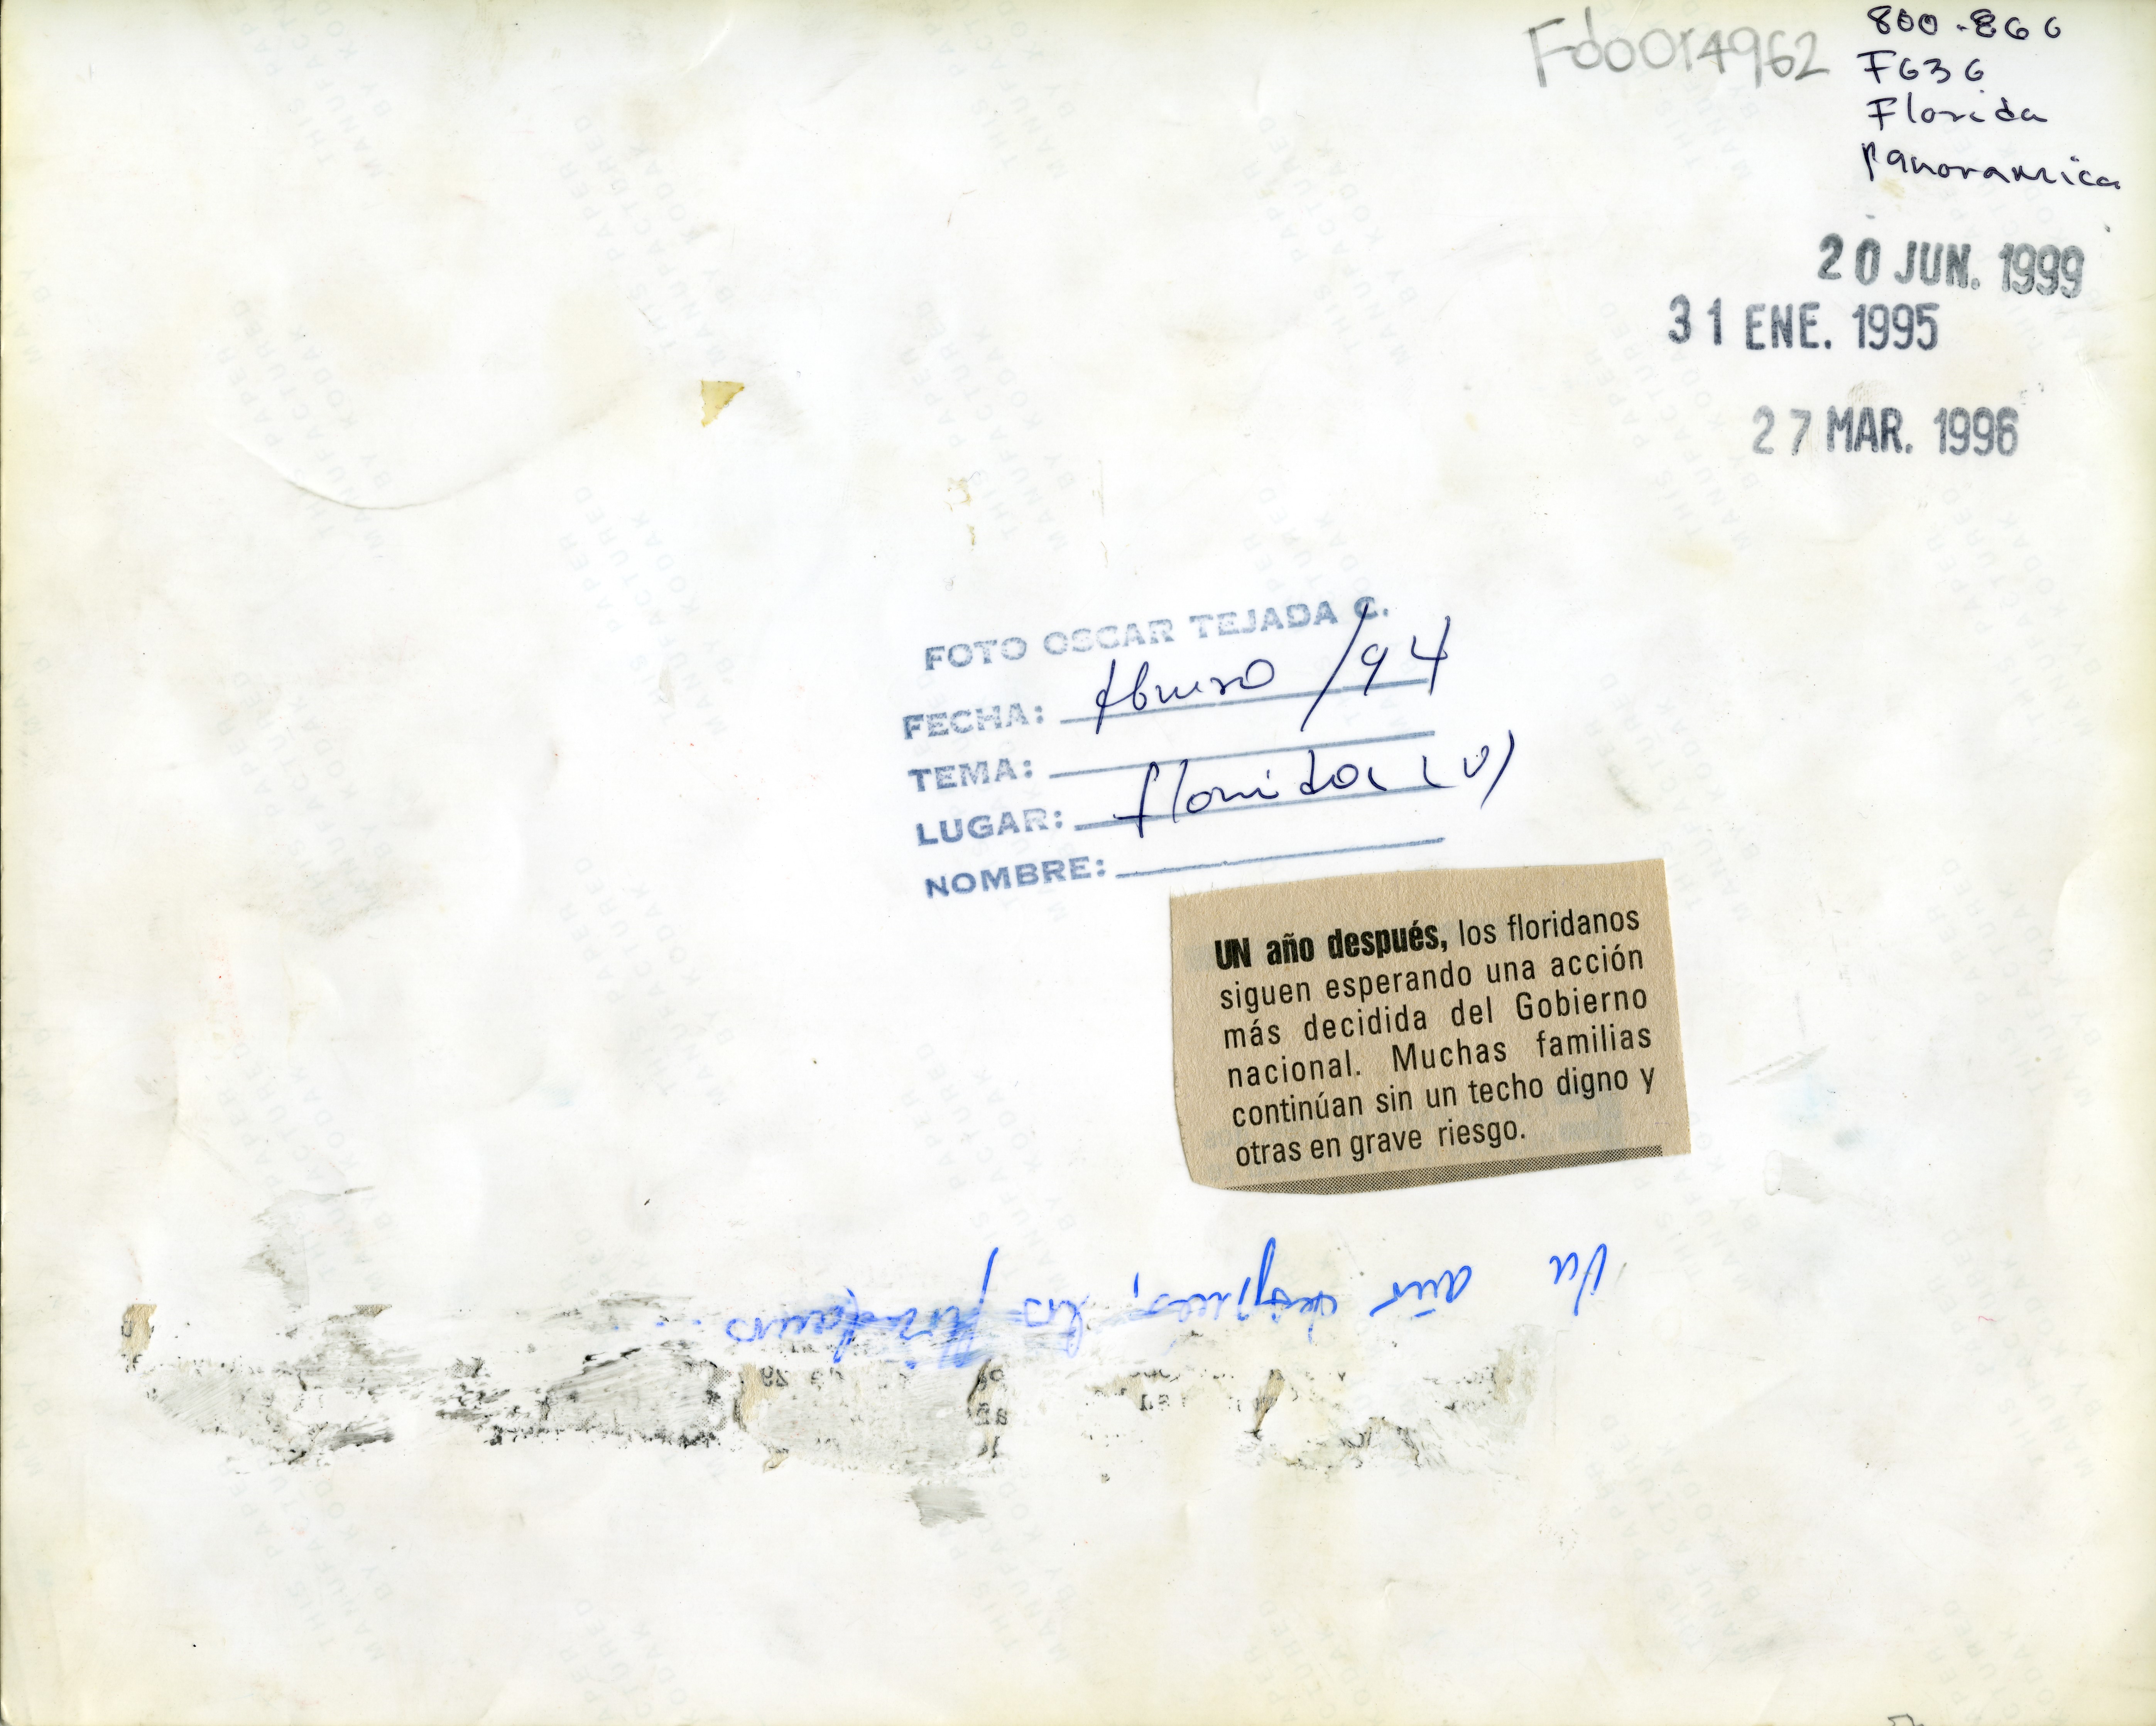 Fdo0014962
800-866
F636
Florida
Panoramica
20 JUN. 1999
31 ENE. 1995
27 MAR. 1996
FOTO OSCAR TEJADA C.
FECHA: febrero /94
TEMA:
LUGAR: florida (V)
NOMBRE:
UN año después, los floridanos
siguen esperando una acción
más decidida del Gobierno
nacional. Muchas familias
continúan sin un techo digno y
otras en grave riesgo.
Un año después, los floridanos ...
THIS PAPER
MANUFACTURED
BY KODAK